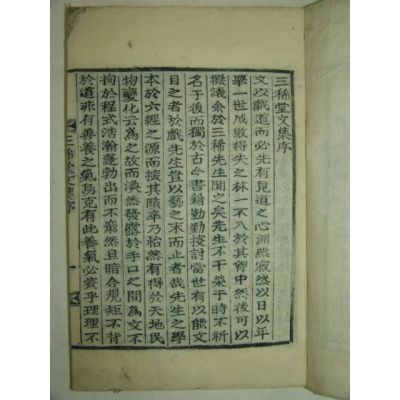 三稀堂文集序
文以載道而必先有見道之心淵然寂然以日以年
畢一世成敗得失之林一不入於其胷中然後可以
擬議余於三稀先生聞之矣先生不干榮于時不祈
名于後而獨於古今書籍勤勤搜討當世有以能文
目之者於戲先生豈以藝之末而止者哉先生之學
本於六經之源而探其賾率乃怡然有得於天地民
物變化云爲之故而渙然發露於手口之間爲文不
拘於程式浩瀚蓬勃出而不窮然且暗合規矩不背
於道非有善養之氣烏克有此善氣必資乎理理不
三稀堂文集序 一